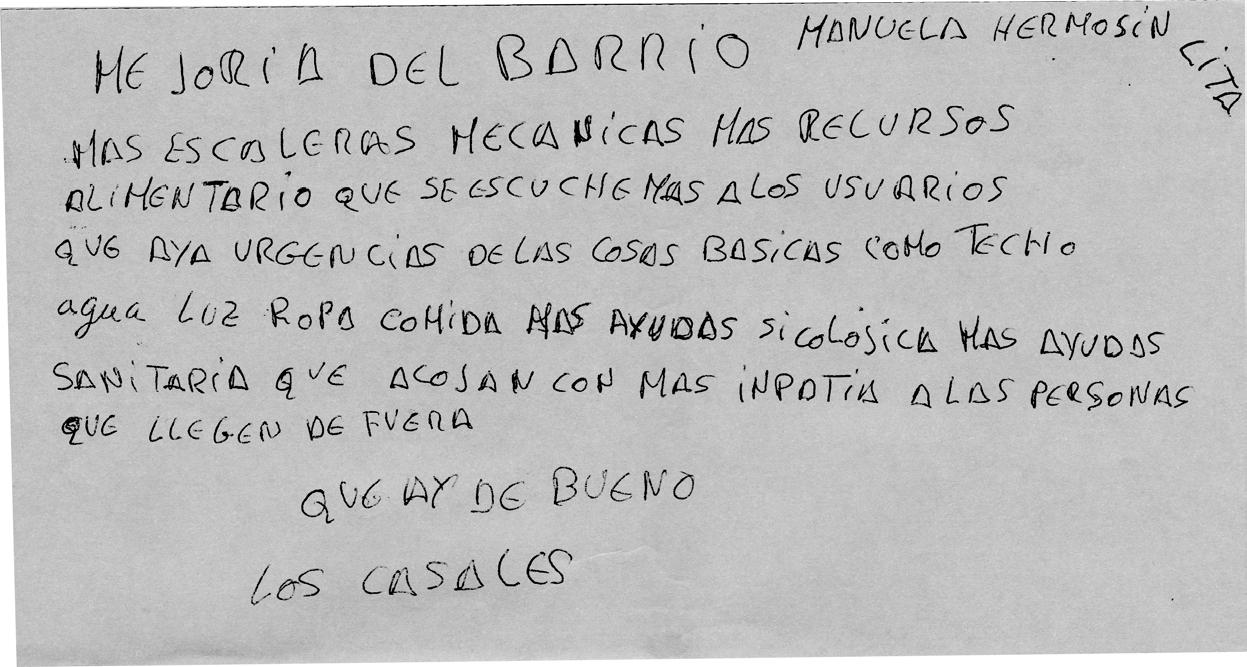 MEJORIA DEL BARRIO MANUELA HERMOSIN
LITA
MAS ESCALERAS MECANICAS MAS RECURSOS
ALIMENTARIO QUE SE ESCUCHE MAS A LOS USUARIOS
QUE AYA URGENCIAS DE LAS COSAS BASICAS COMO TECHO
agua LUZ ROPA COMIDA MAS AYUDAS SICOLOJICA MAS AYUDAS
SANITARIA QUE ACOJAN CON MAS INPATIA A LAS PERSONAS
QUE LLEGEN DE FUERA
QUE AY DE BUENO
LOS CASALES